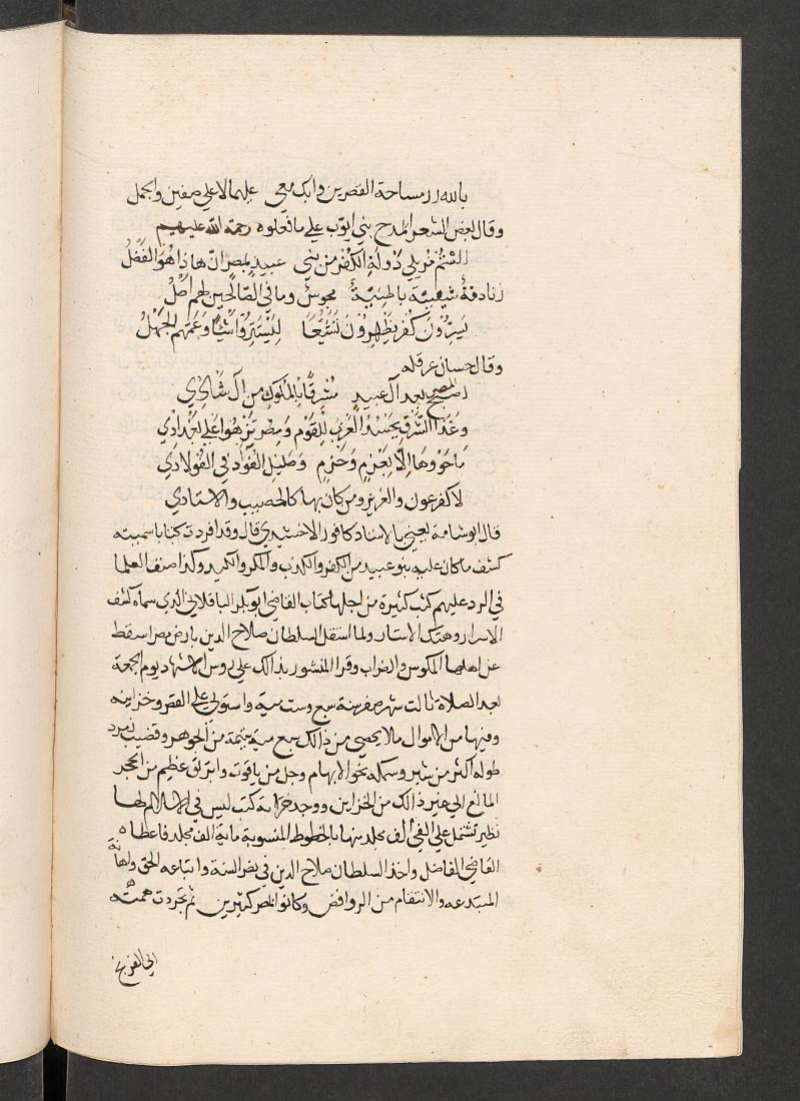 بالله زر ساحة القصرين وابك معي عليهما لا علي صفين والجمل
وقال بعض الشعرا لمدح بني ايوب علي ما فعلوه رحمة الله عليهم
الستم مزيلي دولة الكفر من بني عبيد بمصر ان هاذا هو الفضل
زنادقة شيعية باطنية مجوس وما في الصالحين لهم اصل
يسرون كفر يظهرون تشيعا ليستروا شيا وعمهم الجهل
وقال حسان عرقله
اصبح المصر بعد ال عبيد مشرقا بالملوك من ال شاذي
وغدا الشرق يحسد الغرب للقوم ومصر تزهوا علي بغداذي
ما حووها الا بعزم وحزم وصليل الفواد في الفولاذي
لا كفرعون والعزيز ومن كان بها كالخصيب والاستاذي
قال ابو شامة يعني بالاستاد كافور الاخشيدي قال وقد افردت كتابا سميته
كشف ما كان عليه بنو عبيد من الكفر والكذب والمكر والكيد وكذا صنف العلما
في الرد عليهم كتب كثيرة من اجلها كتاب القاضي ابو بكر الباقلاني الذي سماه كشف
الاسرار وهتك الاستار ولما استقل السلطان صلاح الدين بارض مصر اسقط
عن اهلها المكوس والضراب وقرا المنشور بذالك علي روس الاشهاد يوم الجمعة
بعد الصلاة ثالت شهر صفر سنة سبع وست مية واستولي علي القصر وخزاينه
وفيها من الاموال مالا يحصي من ذالك سبع مية يتيمة من الجوهر وقضيب زمرد
طوله اكثر من شبر وسمكه نحو الابهام وجل من ياقوت وابريق عظيم من الحجر
المانع الي غير ذالك من الخزاين ووجد خزانة كتب ليس في الاسلام لها
نظير تشتمل علي الفي الف مجلد منها بالخطوط المنسوبة ماية الف مجلد فاعطاه
القاضي الفاضل واخذ السلطان صلاح الدين في نصر السنة واتباعه الحق واهانة
المبتدعه والانتقام من الروافض وكانوا بمصر كثيرين ثم تجردت همته
الي الفرنج